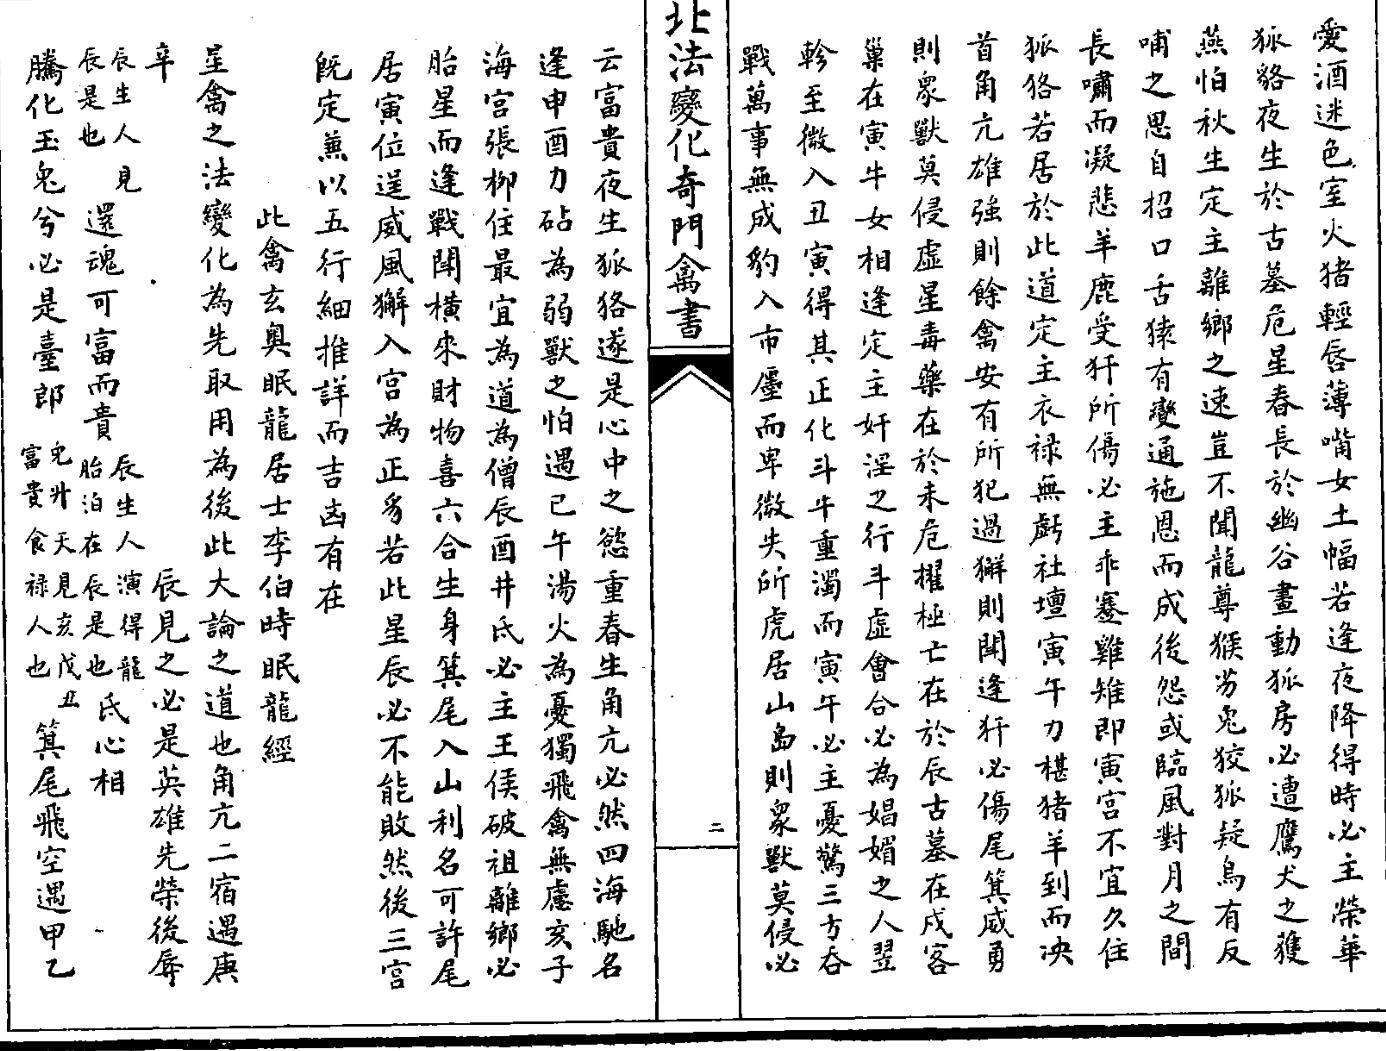 愛酒迷色室火猪輕唇薄嘴女土蝠若逢夜降得時必主榮華
狐貉夜生於古墓危星春長於幽谷晝動狐房必遭鷹犬之獲
燕怕秋生定主離鄉之速豈不聞龍尊猴劣兔狡狐疑烏有反
哺之思自招口舌猿有變通施恩而成後怨或臨風對月之間
長嘯而凝悲羊鹿受犴所傷必主乖蹇雞雉即寅宮不宜久住
狐狢若居於此道定主衣禄無虧社壇寅午力椹猪羊到而决
首角亢雄強則餘禽安有所犯過獬則聞逢犴必傷尾箕威勇
則衆獸莫侵虛星毒藥在於未危擢極亡在於辰古墓在戌客
巢在寅牛女相逢定主奸淫之行斗虛會合必為娼媚之人翌
軫至微入丑寅得其正化斗牛重濁而寅午必主憂驚三方吞
戰萬事無成豹入市廛而卑微失所虎居山島則衆獸莫侵必
北法變化奇門禽書
二
云富貴夜生狐狢遂是心中之慾重春生角亢必然四海馳名
逢申酉力砧為弱獸之怕遇巳午湯火為憂獨飛禽無慮亥子
海宮張柳住最宜為道為僧辰酉井氐必主王侯破祖離鄉必
胎星而逢戰閗横來財物喜六合生身箕尾入山利名可許尾
居寅位逞威風獬入宮為正爲若此星辰必不能敗然後三宮
既定兼以五行細推詳而吉凶有在
此禽玄奥眠龍居士李伯時眠龍經
星禽之法變化為先取用為後此大論之道也角亢二宿遇庚
辛
辰見之必是英雄先榮後辱
辰生人見
辰是也
還魂可富而貴
辰生人演得龍
胎泊在辰是也
氐心相
騰化玉兔兮必是臺郎
兔升天見亥戊丑
富貴食禄人也
箕尾飛空遇甲乙